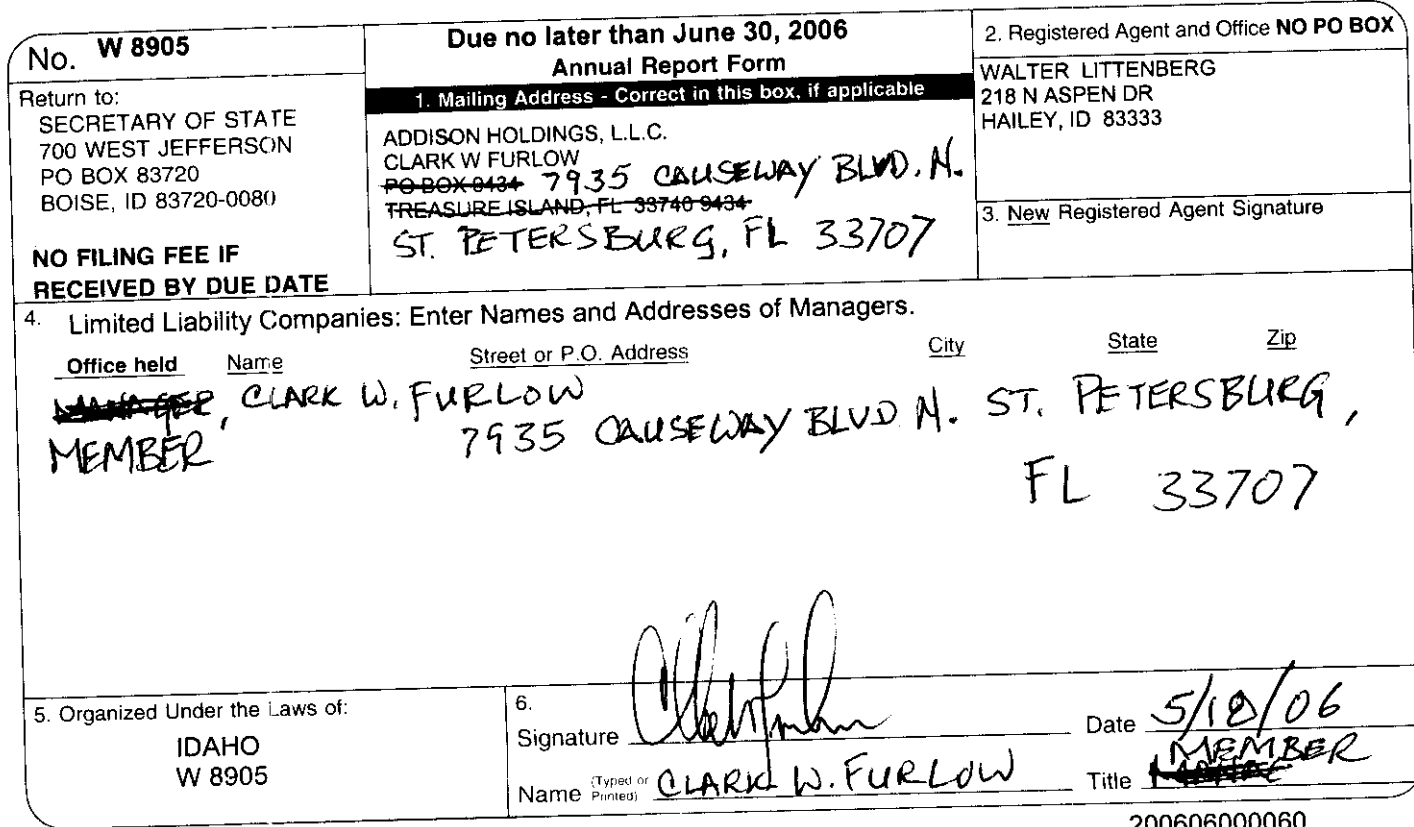 No. W 8905
Return to:
SECRETARY OF STATE
700 WEST JEFFERSON
PO BOX 83720
BOISE, ID 83720-0080
NO FILING FEE IF
RECEIVED BY DUE DATE
Due no later than June 30, 2006
Annual Report Form
1. Mailing Address - Correct in this box, if applicable
ADDISON HOLDINGS, L.L.C.
CLARK W FURLOW
PO BOX 9434 7935 CAUSEWAY BLVD. N.
TREASURE ISLAND, FL 33740 9434
ST. PETERSBURG, FL 33707
2. Registered Agent and Office NO PO BOX
WALTER LITTENBERG
218 N ASPEN DR
HAILEY, ID 83333
3. New Registered Agent Signature
4. Limited Liability Companies: Enter Names and Addresses of Managers.
Office held Name Street or P.O. Address City State Zip
MANAGER, CLARK W. FURLOW
MEMBER 7935 CAUSEWAY BLVD N. ST. PETERSBURG,
FL 33707
5. Organized Under the Laws of:
IDAHO
W 8905
6.
Signature
Date 5/18/06
Name (Typed or Printed) CLARK W. FURLOW
Title MEMBER
200606000060